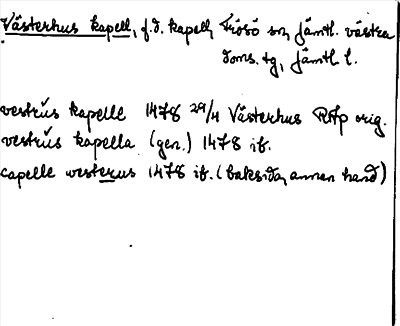 Västerhus kapell, f.d. kapell, Frösö sn, Jämtl. västra
doms. tg, Jämtl. l.
vestrŭs kapelle 1478 29/4 Västerhus RAp orig.
vestrŭs kapella (gen.) 1478 ib.
capelle westerus 1478 ib. (baksida, annan hand)